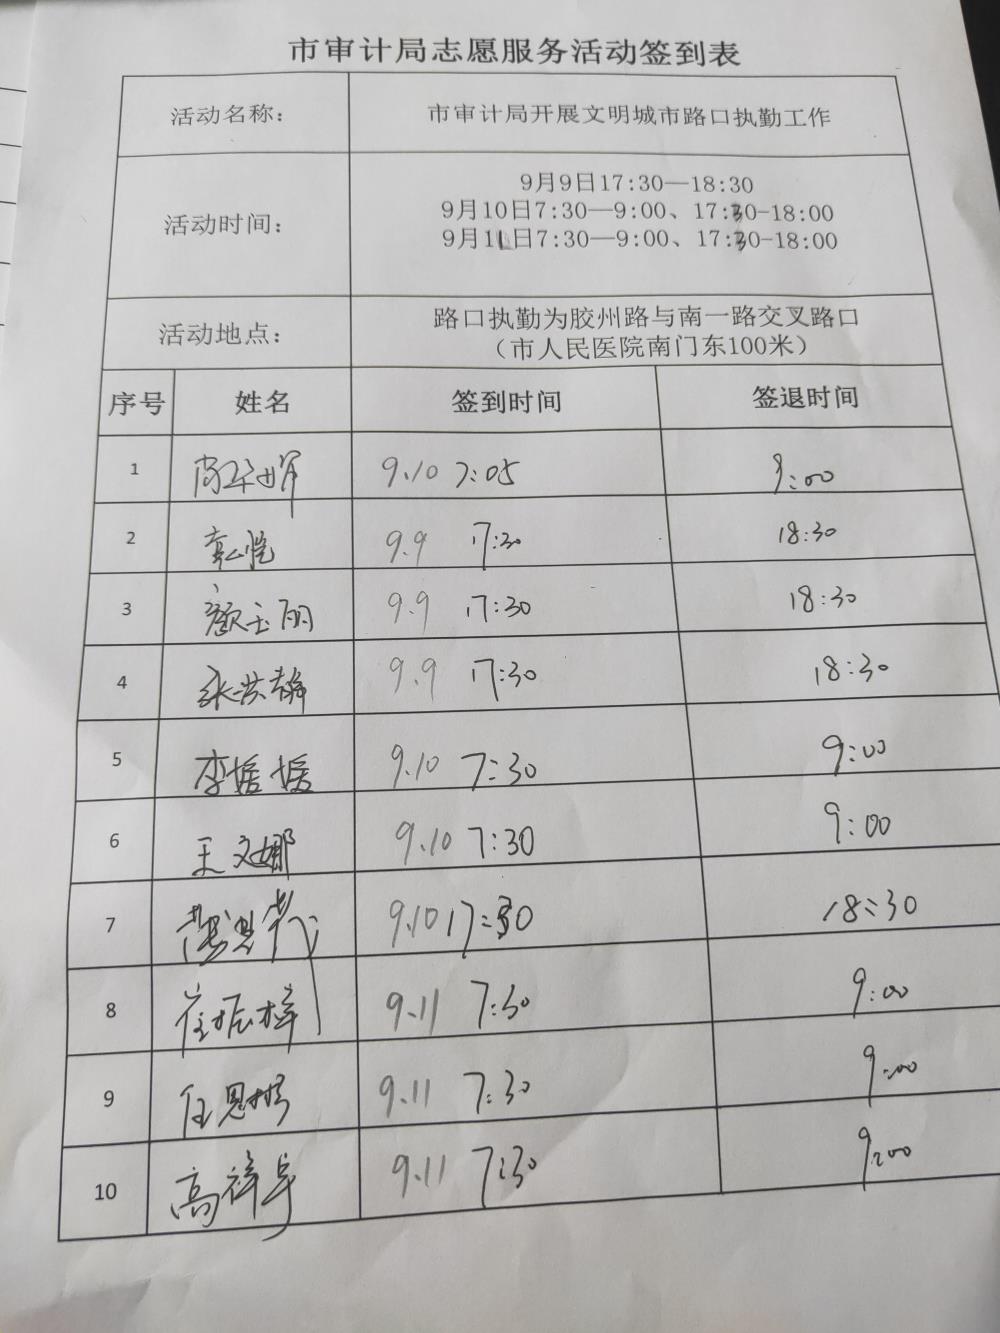 市审计局志愿服务活动签到表
活动名称: 市审计局开展文明城市路口执勤工作
活动时间:
9月9日17:30—18:30
9月10日7:30—9:00、17:30-18:00
9月11日7:30—9:00、17:30-18:00
活动地点:
路口执勤为胶州路与南一路交叉路口
(市人民医院南门东100米)
序号 姓名 签到时间 签退时间
1 9.10 7:05 9:00
2 9.9 17:30 18:30
3 颜玉丽 9.9 17:30 18:30
4 9.9 17:30 18:30
5 李媛媛 9.10 7:30 9:00
6 王文娜 9.10 7:30 9:00
7 9.10 17:30 18:30
8 崔振梓 9.11 7:30 9:00
9 任思 9.11 7:30 9:00
10 高祥 9.11 7:30 9:00